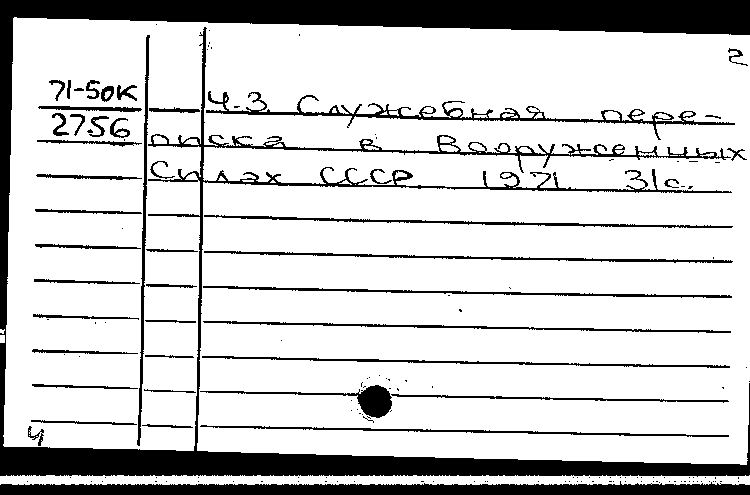 2
71-50К Ч.3. Служебная пере-
2756 писка в Вооруженных
Силах СССР. 1971. 31с.
4